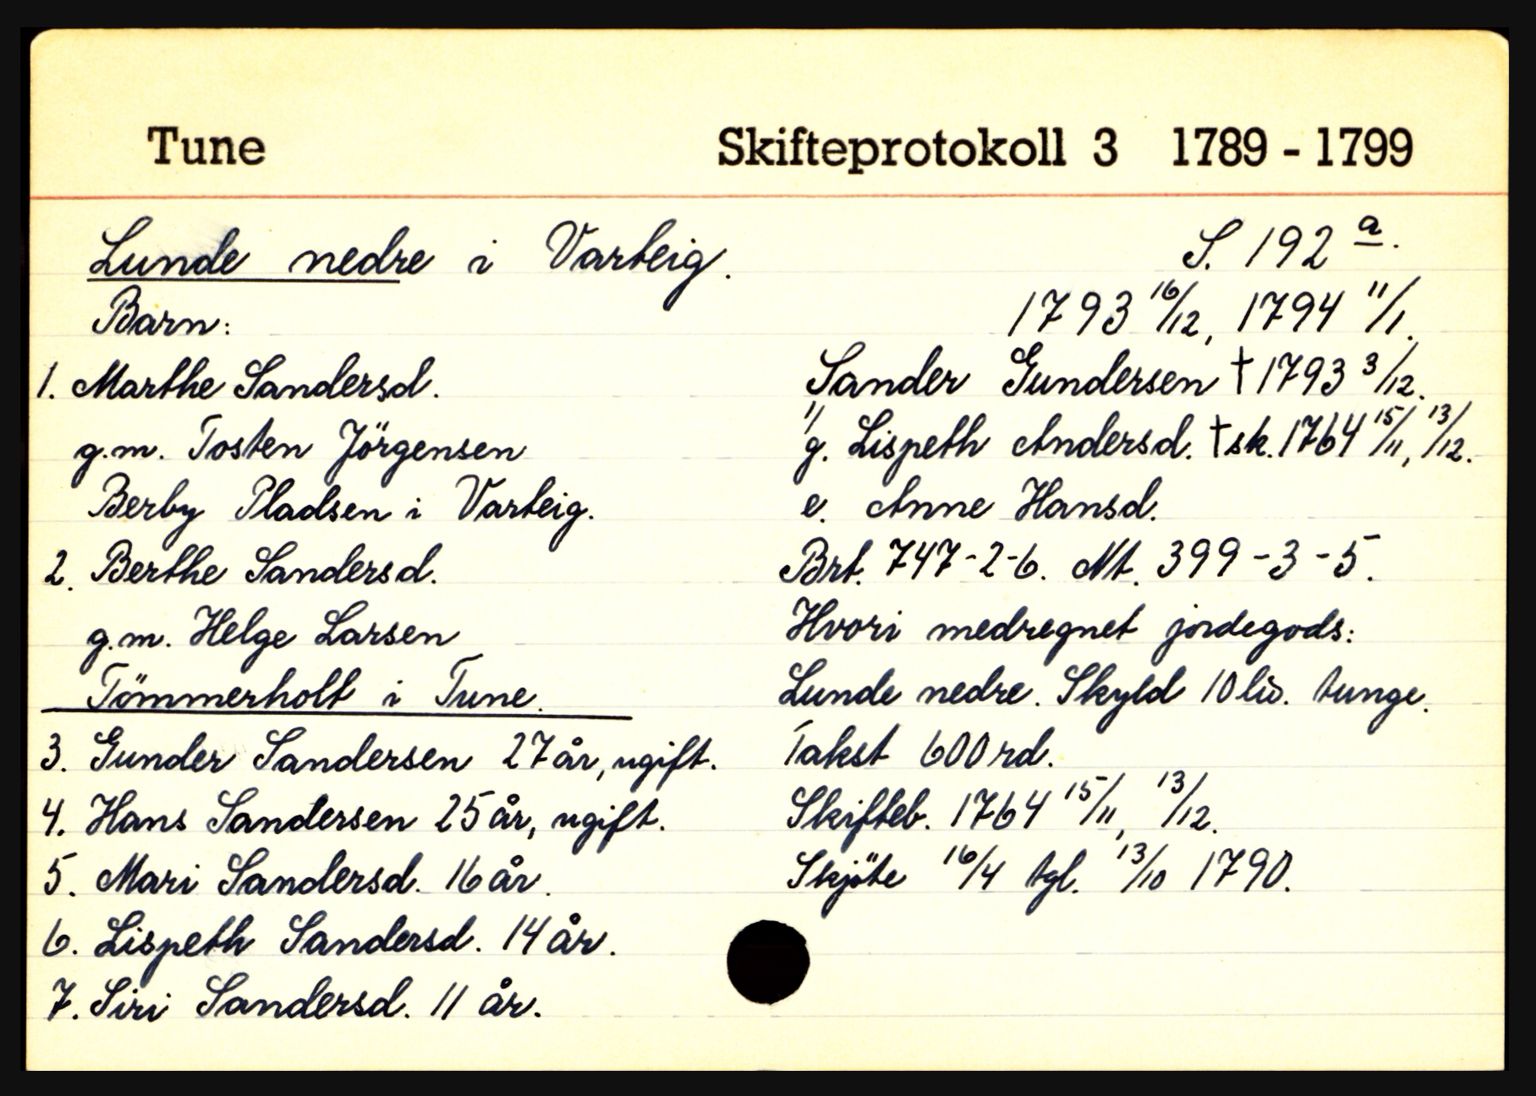 Tune Skifteprotokoll 3 1789 - 1799
Lunde nedre i Varteig. S. 192 a.
Barn: 1793 16/12, 1794 11/1.
1. Marthe Sandersd. Sander Gundersen † 1793 3/12.
g.m. Tosten Jörgensen 1/g. Lispeth Andersd. † sk. 1764 15/11, 13/12.
Berby Pladsen i Varteig. e. Anne Hansd.
2. Berthe Sandersd. Brt. 747-2-6. Nt. 399-3-5.
g.m. Helge Larsen Hvori medregnet jordegods:
Tömmerholt i Tune. Lunde nedre. Skyld 10 lis. tunge.
3. Gunder Sandersen 27 år, ugift. Takst 600 rd.
4. Hans Sandersen 25 år, ugift. Skifteb. 1764 15/11, 13/12.
5. Mari Sandersd. 16 år. Skjöte 16/4 tgl. 13/10 1790.
6. Lispeth Sandersd. 14 år.
7. Siri Sandersd. 11 år.